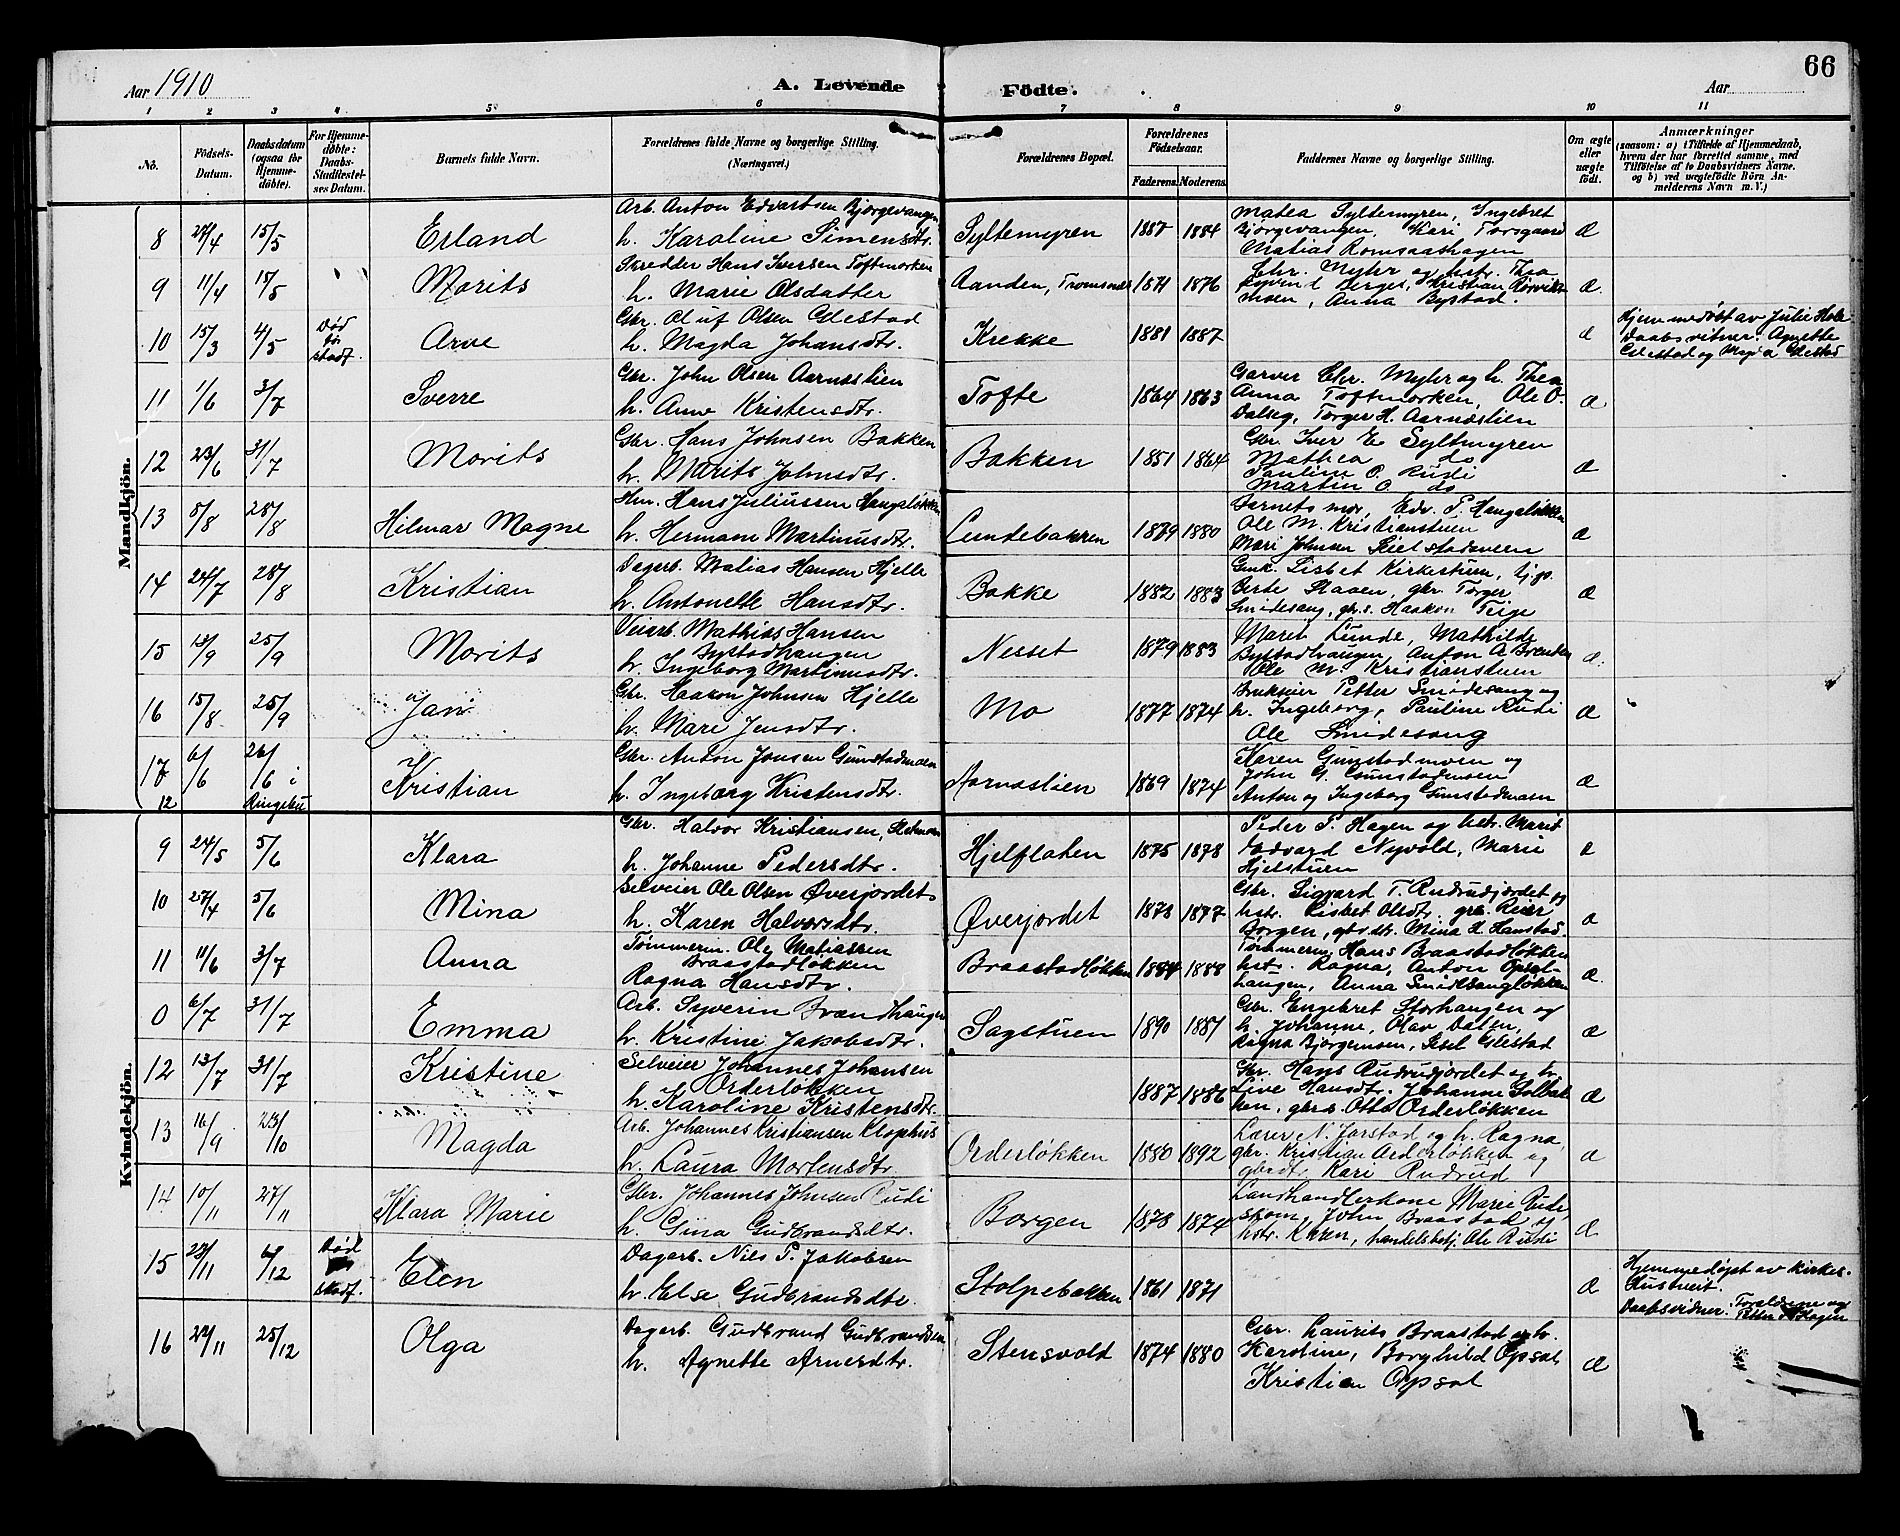 66
Aar 1910
A. Levende
Födte.
Aar
1 2 3 4 5 6 7 8 9 10 11
No.
Födsels-Datum.
Daabsdatum (ogsaa for Hjemmedöbte).
For Hjemmedöbte: Daabs-Stadfestelses Datum.
Barnets fulde Navn.
Forældrenes fulde Navne og borgerlige Stilling. (Næringsvei.)
Forældrenes Bopæl.
Forældrenes Födselsaar.
Faderens. Moderens.
Faddernes Navne og borgerlige Stilling.
Om ægte eller uægte født.
Anmærkninger
(saasom: a) i Tilfælde af Hjemmedaab, hvem der har forrettet samme, med Tilföielse af to Daabsvidners Navne. og b) ved uægtefödte Börn Anmelderens Navn m. V.)
Mandkjön.
8 24/4 15/5 Erland
Arb. Anton Edvartsen Bjørgevangen
h. Karoline Simensdtr.
Syltemyren 1887 1884
Matea Syltemyren, Ingebret
Bjørgevangen, Kari Forsgaard
Matias Romsaashagen
Æ
9 11/4 15/5 Morits
Skredder Hans Iversen Toftmorken
h. Marie Olsdatter
Aanden, Tromsnes 1871 1876
Chr. Myhr og hstr. Thea
Berget, Kristian
moen, Anna Bystad.
Æ
10 15/3 4/5 Død før stadf. Arve
Gbr. Oluf Olsen Glestad
h. Magda Johansdtr.
Krekke 1881 1887
Æ
Hjemmedøbt av Julie Hole
Daabsvitner: Agnette
Glestad og Glestad
11 1/6 3/7 Sverre
Gbr. John Olsen Aarnæslien
h. Anne Kristensdtr.
Tofte 1864 1863
Garver Chr. Myhr og h. Thea
Anna Toftmorken, Ole O.
Dalseg, Torger H. Aarnæslien
Æ
12 23/6 31/7 Morits
Gbr. Hans Johnsen Bakken
h. Marits Johnsdtr.
Bakken 1851 1864
Gbr. Iver E. Syltmyren
Mathea do
Pauline O. Rudi
Martin O do
Æ
13 5/8 28/8 Hilmar Magne
Hans Juliussen Haugaløkken
h. Hermane Martinusdtr.
Lundebakken 1879 1880
Barnets mor, Edv. P. Haugaløkken
Ole M. Kristianstuen
Mari Johnsen
Æ
14 24/7 28/8 Kristian
Dagarb. Matias Hansen Hjelle
h. Antonette Hansdtr.
Bakke 1882 1883
Lisbet Kirkestuen,
Berte Staaen, gbr. Torger
Smidesang, gbr.s. Haakon Teige
Æ
15 13/9 25/9 Morits
Veiarb. Mathias Hansen
Bystadhaugen
h. Ingeborg Martinusdtr.
Nesset 1879 1883
Maret Lunde, Mathilde
Bystadhaugen, Anton A. Brenden
Ole M. Kristianstuen
Æ.
16 15/8 25/9 Jan
Gbr. Haakon Johnsen Hjelle
h. Mari Jensdtr.
Mo 1877 1874
Brukseier Petter Smidesang og
h. Ingeborg, Pauline Rudi
Ole Smidesang
Æ
17 6/6 26/6 i Ringebu Kristian
12
Gbr. Anton Jonsen Gunstadmoen
h. Ingeborg Kristensdtr.
Aarnæslien 1869 1874
Karen Gunstadmoen og
John G. Gunstadmoen
Anton og Ingeborg Gunstadmoen
Æ
Kvindekjön.
9 24/5 5/6 Klara
Gbr. Halvor Kristiansen,
h. Johanne Pedersdtr.
Hjelflaten 1875 1878
Peder P. Hagen og hstr. Marit
Edvard Nyvold, Marie
Hjelstuen
Æ
10 27/4 5/6 Mina
Selveier Ole Olsen Øverjordet
h. Karen Halvorsdtr.
Øverjordet 1878 1877
Gbr. Sigvard T. Rudrudjordet og
hstr. Lisbet Olsdtr. Reier
Borgen, gbrdtr. Mina H. Hanstad.
Æ
11 11/6 3/7 Anna
Tømmerm. Ole Matiassen
Braastadløkken
Ragna Hansdtr.
Braastadløkken 1884 1888
Tømmerm. Hans Braastadløkken
hstr. Ragna, Anton Opsal-
haugen, Anna Smidesangløkken
Æ.
0 6/7 31/7 Emma
Arb. Syverin Brændhaugen
h. Kristine Jakobsdtr.
Sagstuen 1890 1887
Gbr. Engebret Storhaugen og
h. Johanne, Olav Dalen,
Ragna Bjørgemoen, Sisel Glestad
Æ
12 13/7 31/7 Kristine
Selveier Johannes Johansen
Orderløkken
h. Karoline Kristensdtr.
1887 1886
Gbr. Hans Rudrudjordet og h.
Live Hansdtr. Johanne Solbak-
ken, gbr.s. Otto Orderløkken
Æ
13 16/9 23/10 Magda
Arb. Johannes Kristiansen Klophus
h. Laura Mortensdtr.
Orderløkken 1880 1892
Lærer N. Jarstad og h. Ragna,
gbr. Kristian Orderløkken og
gbrdtr. Kari Rudrud
Æ
14 10/11 27/11 Klara Marie
Gbr. Johannes Johnsen Rudi
h. Gina Gudbrandsdtr.
Borgen 1878 1874
Landhandlerkone Marie Rudi
John Braastad og
hstr. Karen, handelsbetj. Ole Rudi
Æ
15 28/11 4/12 Død stadf. Elen
Dagarb. Nils P. Jakobsen
h. Else Gudbrandsdtr.
Stolpebakken 1861 1871
Æ
Hjemmedøpt av kirkes.
Daabsvidner: Forældrene og
Hagen
16 24/11 25/12 Olga
Dagarb. Gudbrand Gudbrandsen
h. Agnette Arnesdtr.
Stensvold 1874 1880
Gbr. Laurits Braastad og h.
Karoline, Borghild Opsal,
Kristian Opsal
Æ